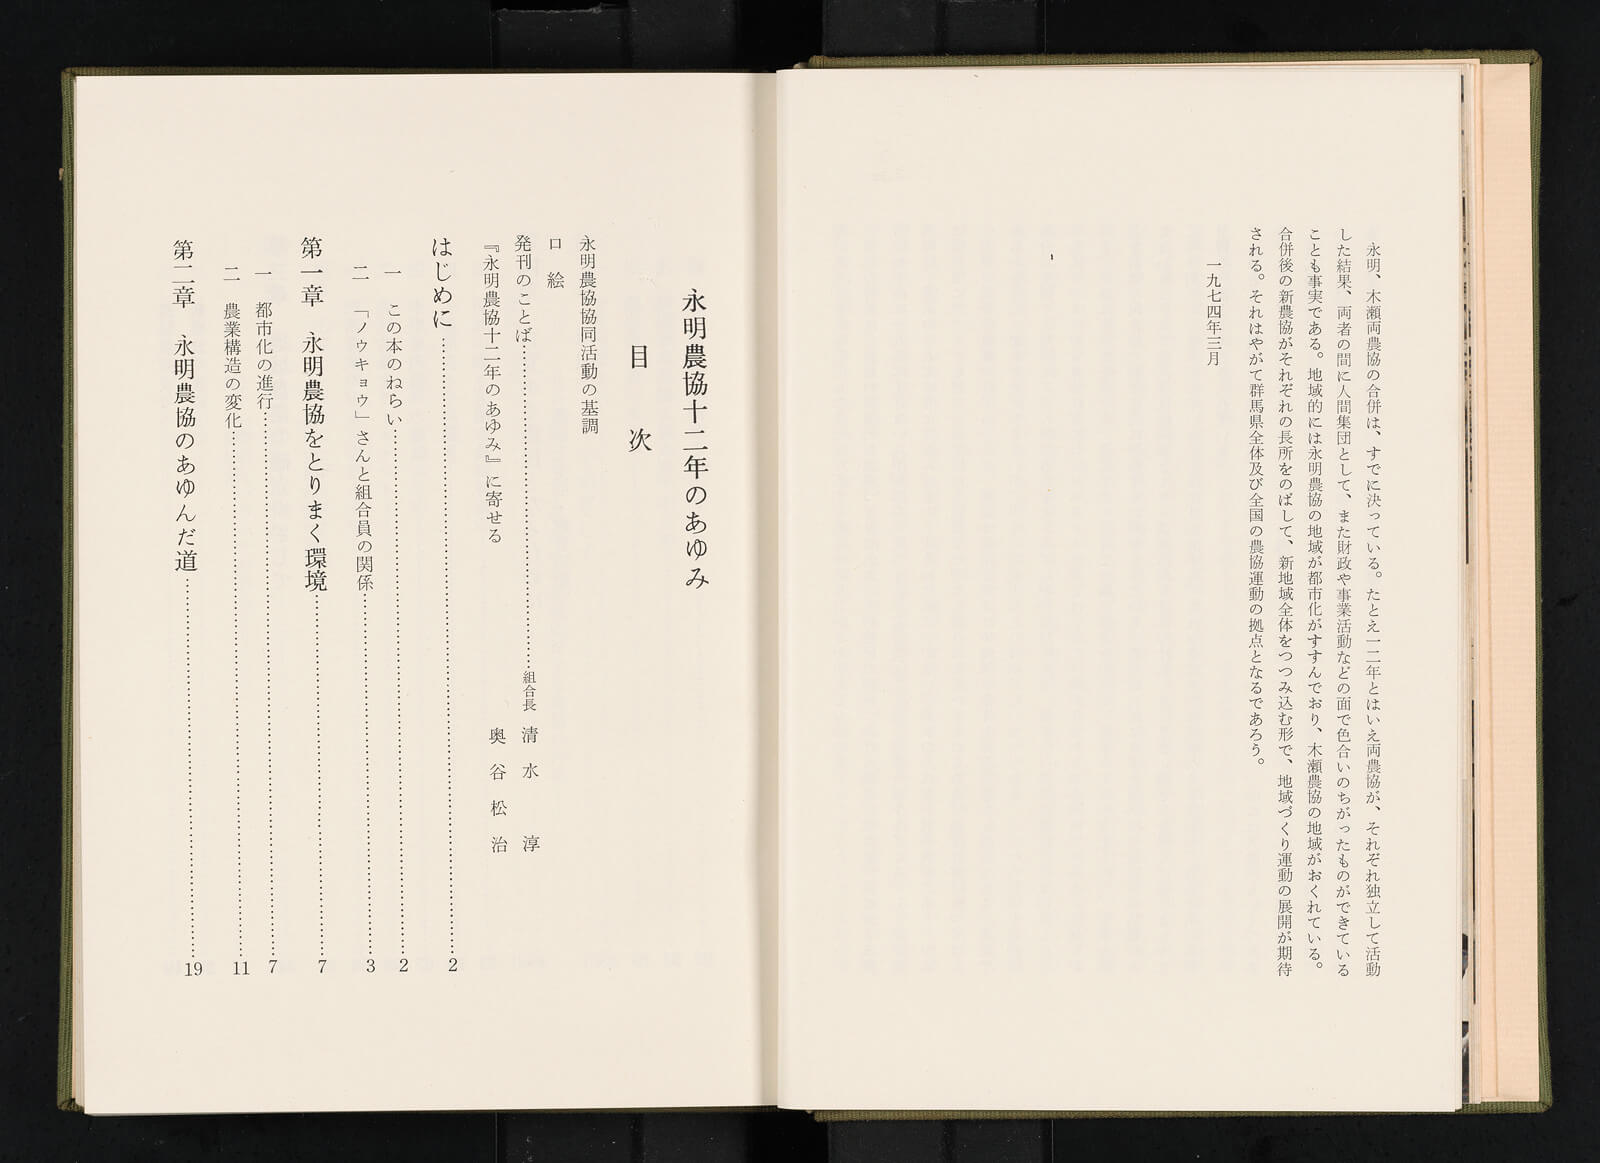 永明、木瀬両農協の合併は、すでに決っている。たとえ一二年とはいえ両農協が、それぞれ独立して活動
した結果、両者の間に人間集団として、また財政や事業活動などの面で色合いのちがったものができている
ことも事実である。地域的には永明農協の地域が都市化がすすんでおり、木瀬農協の地域がおくれている。
合併後の新農協がそれぞれの長所をのばして、新地域全体をつつみ込む形で、地域づくり運動の展開が期待
される。それはやがて群馬県全体及び全国の農協運動の拠点となるであろう。
一九七四年三月
永明農協十二年のあゆみ
目次
永明農協協同活動の基調
口絵
発刊のことば……………………組合長 清水 淳
『永明農協十二年のあゆみ』に寄せる 奥谷松治
はじめに……………………2
一 この本のねらい……………………2
二 「ノウキョウ」さんと組合員の関係……………………3
第一章 永明農協をとりまく環境……………………7
一 都市化の進行……………………7
二 農業構造の変化……………………11
第二章 永明農協のあゆんだ道……………………19